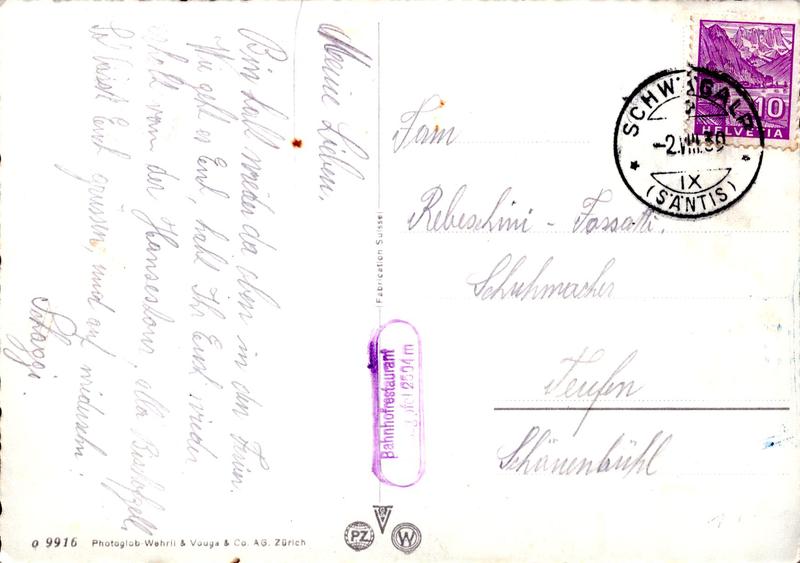 Meine Lieben,
Bin halt wieder da oben in den Ferien.
Wie geht es Euch, habt Ihr Euch wieder
erholt von der
Es lässt Euch grüssen, und auf wiedersehn!
Fabrication Suisse
Bahnhofrestaurant
2504 m
Fam
Rebeschini - Fossatti,
Schuhmacher
Teufen
Schönenbühl
10
HELVETIA
SCHWÄGALP
-2.VIII.39
IX
(SÄNTIS)
o 9916 Photoglob-Wehrli & Vouga & Co. AG. Zürich
PZ
V
W